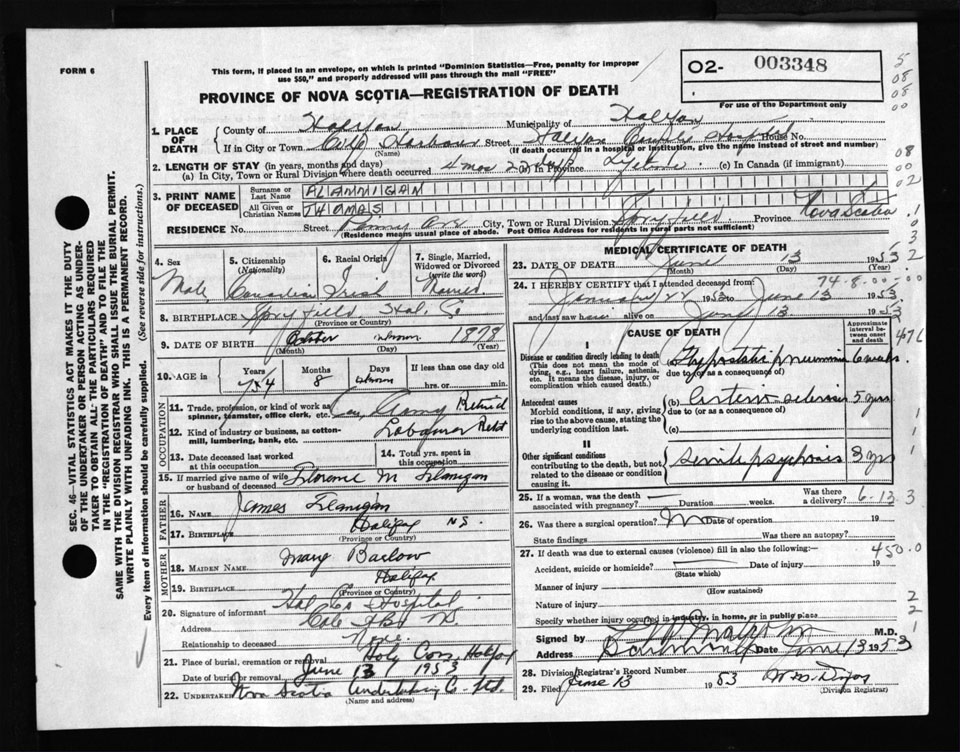 FORM 6
This form, if placed in an envelope, on which is printed "Dominion Statistics—Free, penalty for improper
use $50," and properly addressed will pass through the mail "FREE"
O2- 003348
For use of the Department only
PROVINCE OF NOVA SCOTIA—REGISTRATION OF DEATH
SEC. 46—VITAL STATISTICS ACT MAKES IT THE DUTY
OF THE UNDERTAKER OR PERSON ACTING AS UNDER-
TAKER TO OBTAIN ALL THE PARTICULARS REQUIRED
IN THE "REGISTRATION OF DEATH" AND TO FILE THE
SAME WITH THE DIVISION REGISTRAR WHO SHALL ISSUE THE BURIAL PERMIT.
WRITE PLAINLY WITH UNFADING INK. THIS IS A PERMANENT RECORD.
Every item of information should be carefully supplied. (See reverse side for instructions.)
1. PLACE OF DEATH
County of Halifax Municipality of Halifax
If in City or Town Cole Harbour Street Halifax County Hospital House No.
(Name) (If death occurred in a hospital or institution, give the name instead of street and number)
2. LENGTH OF STAY (in years, months and days)
(a) In City, Town or Rural Division where death occurred 4 mos 22 days (b) In Province Life (c) In Canada (if immigrant)
3. PRINT NAME OF DECEASED
Surname or Last Name FLANNIGAN
All Given or Christian Names THOMAS
RESIDENCE No. Street City, Town or Rural Division Spryfield Province Nova Scotia
(Residence means usual place of abode. Post Office Address for residents in rural parts not sufficient)
4. Sex
Male
5. Citizenship (Nationality)
Canadian
6. Racial Origin
Irish
7. Single, Married, Widowed or Divorced (write the word)
Married
8. BIRTHPLACE Spryfield Hal. Co
(Province or Country)
9. DATE OF BIRTH October unknown 1878
(Month) (Day) (Year)
10. AGE in Years 74 Months 8 Days unknown If less than one day old hrs. or min.
OCCUPATION
11. Trade, profession, or kind of work as spinner, teamster, office clerk, etc. Retired
12. Kind of industry or business, as cotton-mill, lumbering, bank, etc. Labourer
13. Date deceased last worked at this occupation
14. Total yrs. spent in this occupation
15. If married give name of wife or husband of deceased Florence M Flanigan
FATHER
16. NAME James Flanigan
17. BIRTHPLACE Halifax N.S.
(Province or Country)
MOTHER
18. MAIDEN NAME Mary Barlow
19. BIRTHPLACE Halifax
(Province or Country)
20. Signature of informant Hal Co Hospital
Address Cole Hbr NS.
Relationship to deceased None.
21. Place of burial, cremation or removal Holy Cross Halifax
Date of burial or removal June 1953
22. UNDERTAKER Nova Scotia Undertaking Co. Ltd.
(Name and address)
MEDICAL CERTIFICATE OF DEATH
23. DATE OF DEATH June 13 1953
(Month) (Day) (Year)
24. I HEREBY CERTIFY that I attended deceased from:
January 22 1953 to June 13 1953
and last saw h alive on June 13 1953
CAUSE OF DEATH
Approximate interval between onset and death
I
Disease or condition directly leading to death
(This does not mean the mode of dying, e.g., heart failure, asthenia, etc. It means the disease, injury, or complication which caused death.)
(a) Hypostatic pneumonia 6 weeks
due to (or as a consequence of)
Antecedent causes
Morbid conditions, if any, giving rise to the above cause, stating the underlying condition last.
(b) Arterio-sclerosis 5 yrs
due to (or as a consequence of)
(c)
II
Other significant conditions
contributing to the death, but not related to the disease or condition causing it.
Senile psychosis 3 yrs
25. If a woman, was the death associated with pregnancy? Duration weeks. Was there a delivery?
26. Was there a surgical operation? No Date of operation 19
State findings Was there an autopsy?
27. If death was due to external causes (violence) fill in also the following:—
Accident, suicide or homicide? Date of injury 19
(State which)
Manner of injury
(How sustained)
Nature of injury
Specify whether injury occurred in industry, in home, or in public place
Signed by M.D.
Address Dartmouth Date June 13 1953
28. Division Registrar's Record Number
29. Filed June 13 1953
(Division Registrar)